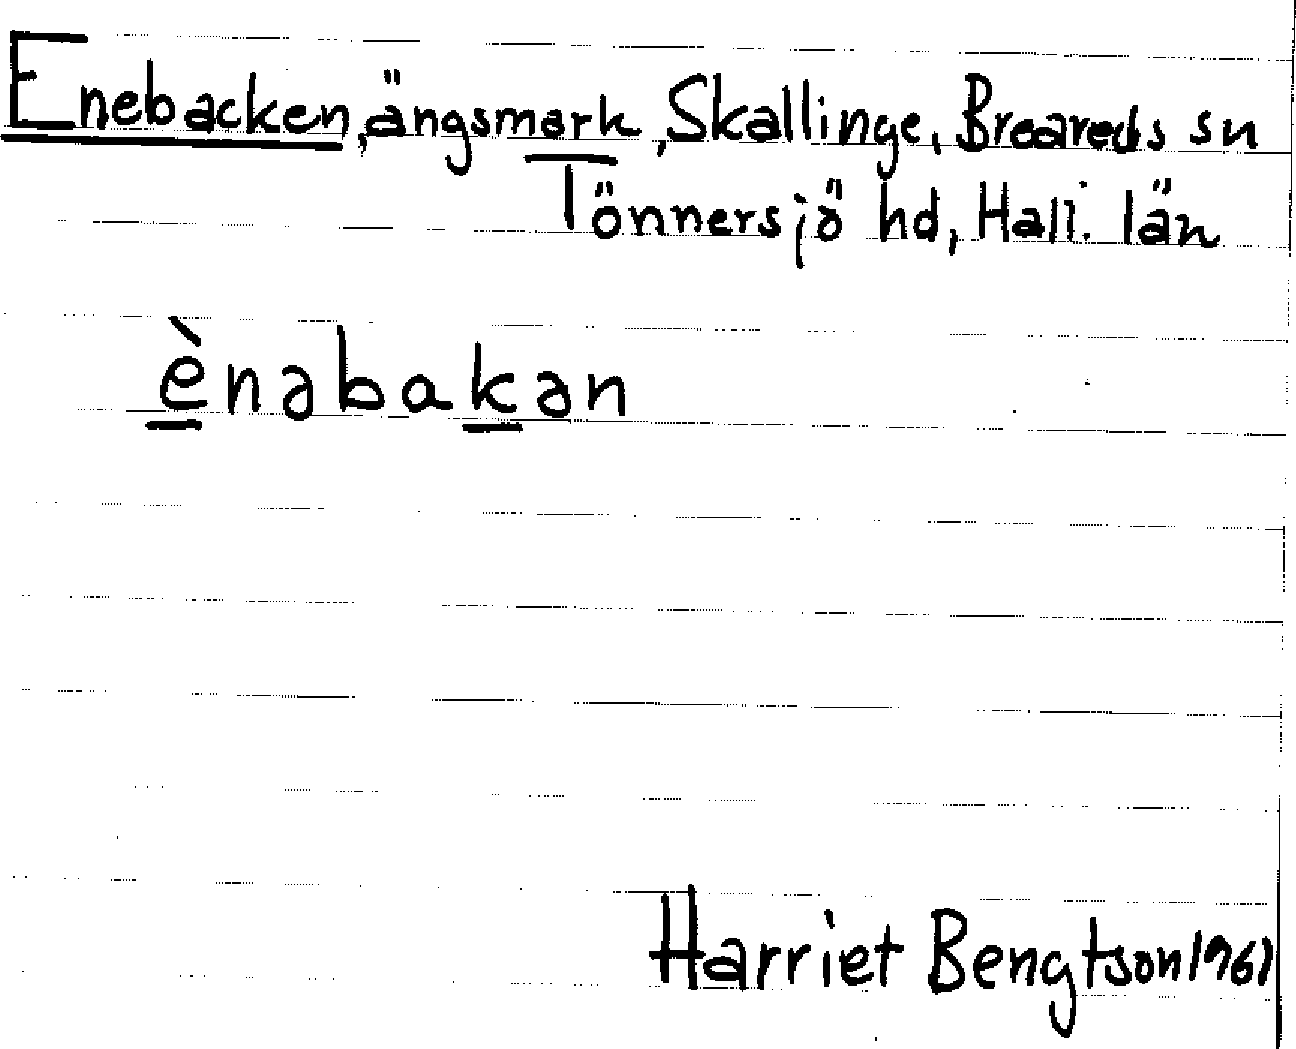 Enebacken, ängsmark, Skallinge, Breareds sn
Tönnersjö hd, Hall. län
ènəbakən
Harriet Bengtson 1961